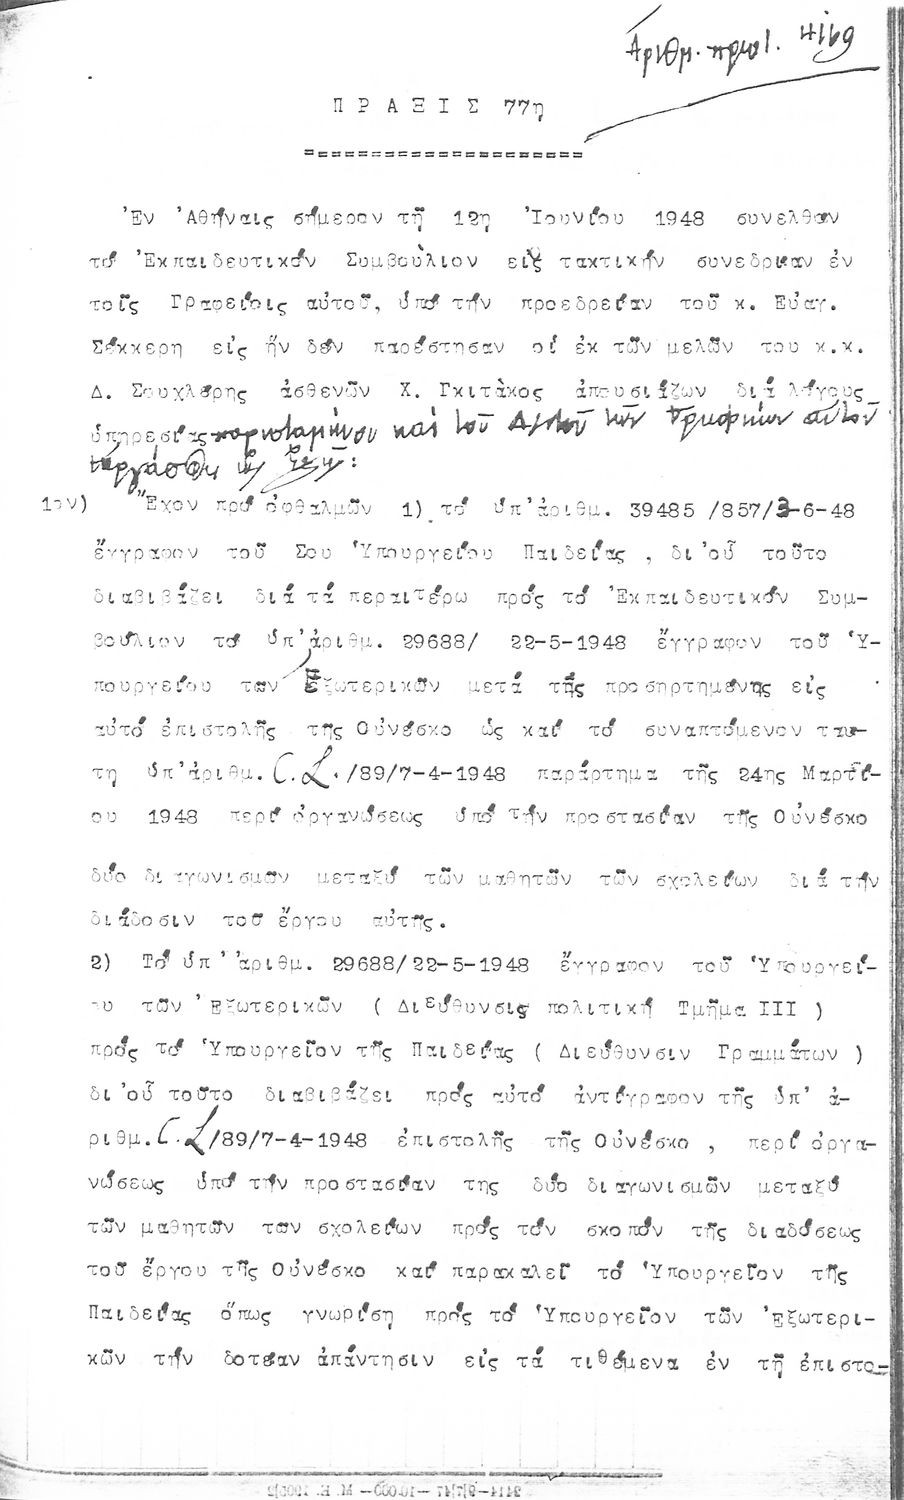 Ἀριθμ. πρωτ.
ΠΡΑΞΙΣ 77η
Ἐν Ἀθήναις σήμερον τῇ 12η Ἰουνίου 1948 συνελθὸν
τό Ἐκπαιδευτικόν Συμβούλιον εἰς τακτικήν συνεδρίαν ἐν
τοῖς Γραφείοις αὐτοῦ, ὑπό τήν προεδρείαν τοῦ κ. Εὐαγ.
Σέκκερη εἰς ἥν δέν παρέστησαν οἱ ἐκ τῶν μελῶν του κ.κ.
Δ. Σουχλέρης ἀσθενῶν Χ. Γκιτάκος ἀπουσιάζων διά λόγους
ὑπηρεσίας παρισταμένου καί τοῦ Δ/ντοῦ τῶν Γραφείων αὐτοῦ
εἰργάσθη ὡς ἑξῆς:
1ον) Ἔχον πρό ὀφθαλμῶν 1) τό ὑπ'ἀριθμ. 39485 /857/3-6-48
ἔγγραφον τοῦ Σου Ὑπουργείου Παιδείας , δι'οὗ τοῦτο
διαβιβάζει διά τά περαιτέρω πρός τό Ἐκπαιδευτικόν Συμ-
βούλιον τό ὑπ'ἀριθμ. 29688/ 22-5-1948 ἔγγραφον τοῦ Ὑ-
πουργείου των Ἐξωτερικῶν μετά τῆς προσηρτημένης εἰς
αὐτό ἐπιστολῆς της Οὐνέσκο ὡς καί τό συναπτόμενον ταυ-
τη ὑπ'ἀριθμ. C.L./89/7-4-1948 παράρτημα τῆς 24ης Μαρτί-
ου 1948 περί ὀργανώσεως ὑπό τήν προστασίαν τῆς Οὐνέσκο
δύο διαγωνισμῶν μεταξύ τῶν μαθητῶν τῶν σχολείων διά τήν
διάδοσιν του ἔργου αὐτῆς.
2) Τό ὑπ'ἀριθμ. 29688/22-5-1948 ἔγγραφον τοῦ Ὑπουργεί-
ου τῶν Ἐξωτερικῶν ( Διεύθυνσις πολιτική Τμῆμα ΙΙΙ )
πρός τό Ὑπουργεῖον τῆς Παιδείας ( Διεύθυνσιν Γραμμάτων )
δι'οὗ τοῦτο διαβιβάζει πρός αὐτό ἀντίγραφον τῆς ὑπ' ἀ-
ριθμ. C.L/89/7-4-1948 ἐπιστολῆς τῆς Οὐνέσκο , περί ὀργα-
νώσεως ὑπό τήν προστασίαν της δύο διαγωνισμῶν μεταξύ
τῶν μαθητῶν των σχολείων πρός τόν σκοπόν τῆς διαδόσεως
του ἔργου τῆς Οὐνέσκο καί παρακαλεῖ τό Ὑπουργεῖον τῆς
Παιδείας ὅπως γνωρίση πρός τό Ὑπουργεῖον τῶν Ἐξωτερι-
κῶν τήν δοτέαν ἀπάντησιν εἰς τά τιθέμενα ἐν τῇ ἐπιστο-